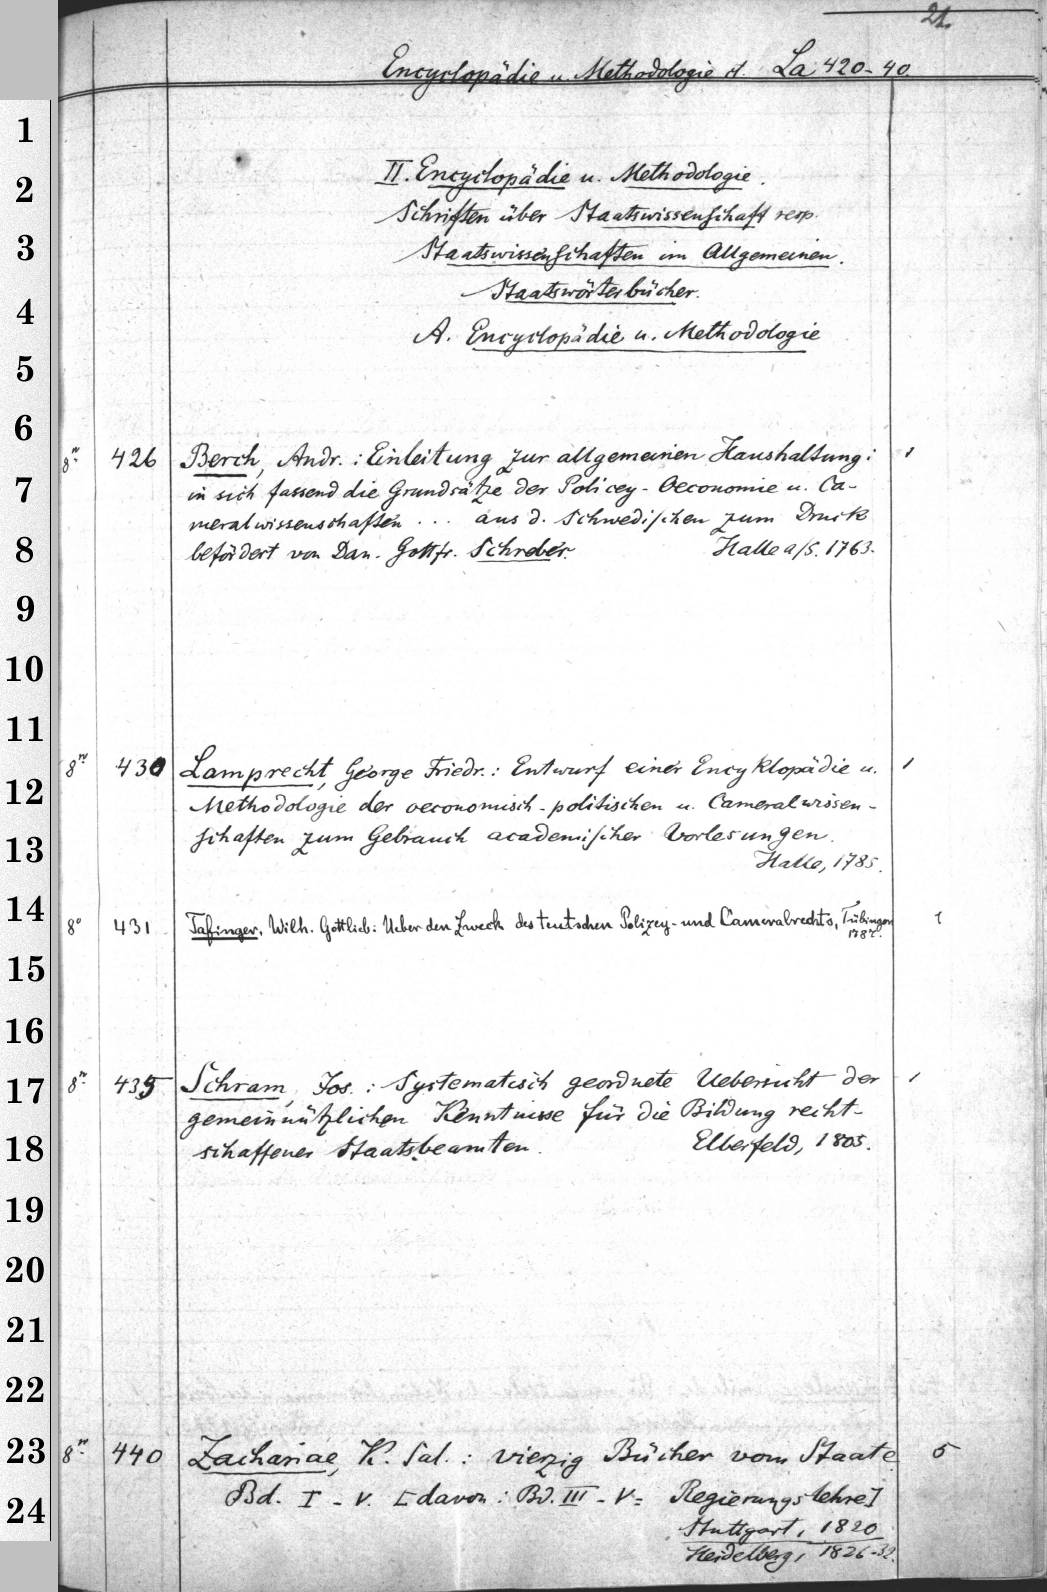 21.
Encyclopädie u. Methodologie A. La 420-40
II. Encyclopädie u. Methodologie.
Schriften über Staatswissenschaft resp.
Staatswissenschaften im Allgemeinen.
Staatswörterbücher.
A. Encyclopädie u. Methodologie
8º 426 Berch, Andr.: Einleitung zur allgemeinen Haushaltung: 1
in sich fassend die Grundsätze der Policey-Oeconomie u. Ca-
meralwissenschaften ... aus d. Schwedischen zum Druck
befördert von Dan. Gottfr. Schreber. Halle a/S. 1763.
8º 430 Lamprecht, George Friedr.: Entwurf einer Encyklopädie u. 1
Methodologie der oeconomisch-politischen u. Cameralwissen-
schaften zum Gebrauch academischer Vorlesungen.
Halle, 1785.
8º 431 Tafinger, Wilh. Gottlieb: Ueber den Zweck des teutschen Polizey- und Cameralrechts, Tübingen 1
8º 435 Schram, Jos.: Systematisch geordnete Uebersicht der 1
gemeinnützlichen Kenntnisse für die Bildung recht-
schaffener Staatsbeamten. Elberfeld, 1805.
8º 440 Zachariae, K. Sal.: Vierzig Bücher vom Staate 5
Bd. I-V. [davon: Bd. III-V= Regierungslehre]
Stuttgart, 1820
Heidelberg, 1826-32.
1
2
3
4
5
6
7
8
9
10
11
12
13
14
15
16
17
18
19
20
21
22
23
24